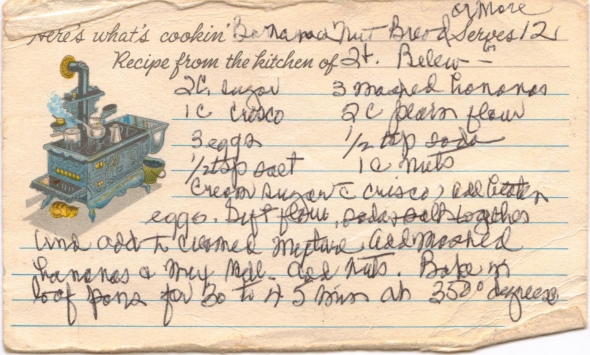 or more
Here's what's cookin' Banana Nut Bread Serves 12
Recipe from the kitchen of Below
2C. sugar 3 mashed bananas
1C Crisco 2C plain flour
3 eggs 1/2 tsp soda
1/2 tsp salt 1C nuts
Cream sugar c Crisco, add beaten
eggs. Sift flour, soda & salt together
and add to creamed mixture. Add mashed
bananas & mix well. Add nuts. Bake in
loaf pans for 30 to 45 min at 350° degrees